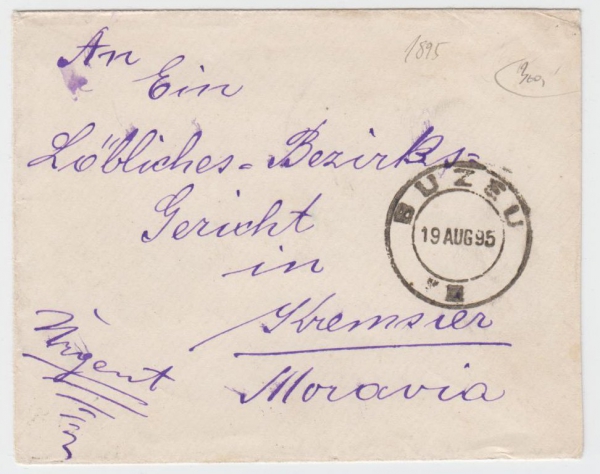 An
1895
Ein
Löbliches=Bezirks=
Gericht
in
Kremsier
Moravia
Urgent
BUZEU
19 AUG 95